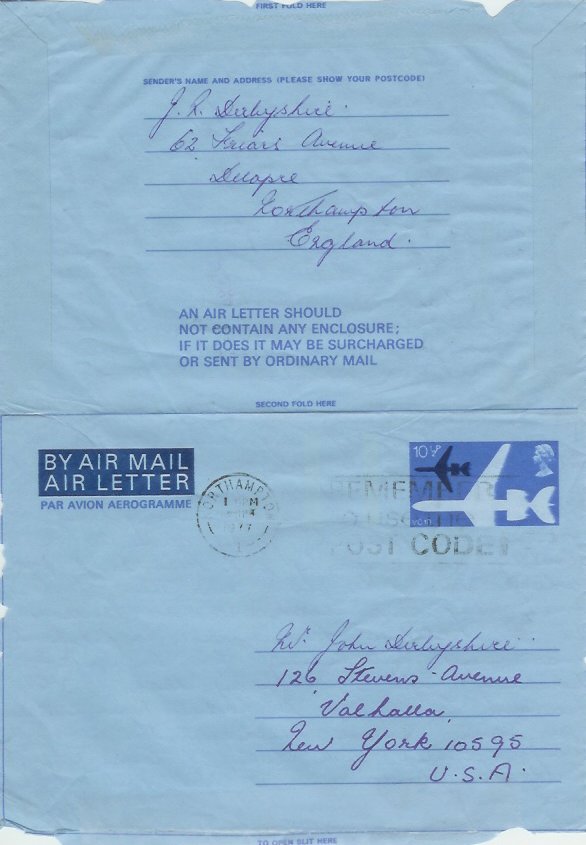 FIRST FOLD HERE
SENDER'S NAME AND ADDRESS (PLEASE SHOW YOUR POSTCODE)
J. R. Derbyshire.
62 Friars Avenue
Delapre
Northampton
England.
AN AIR LETTER SHOULD
NOT CONTAIN ANY ENCLOSURE;
IF IT DOES IT MAY BE SURCHARGED
OR SENT BY ORDINARY MAIL
SECOND FOLD HERE
BY AIR MAIL
AIR LETTER
PAR AVION AEROGRAMME
NORTHAMPTON
PM
1977
10½P
REMEMBER
POST CODE
Mr. John Derbyshire
126 Stevens Avenue
Valhalla
New York 10595
U.S.A.
TO OPEN SLIT HERE